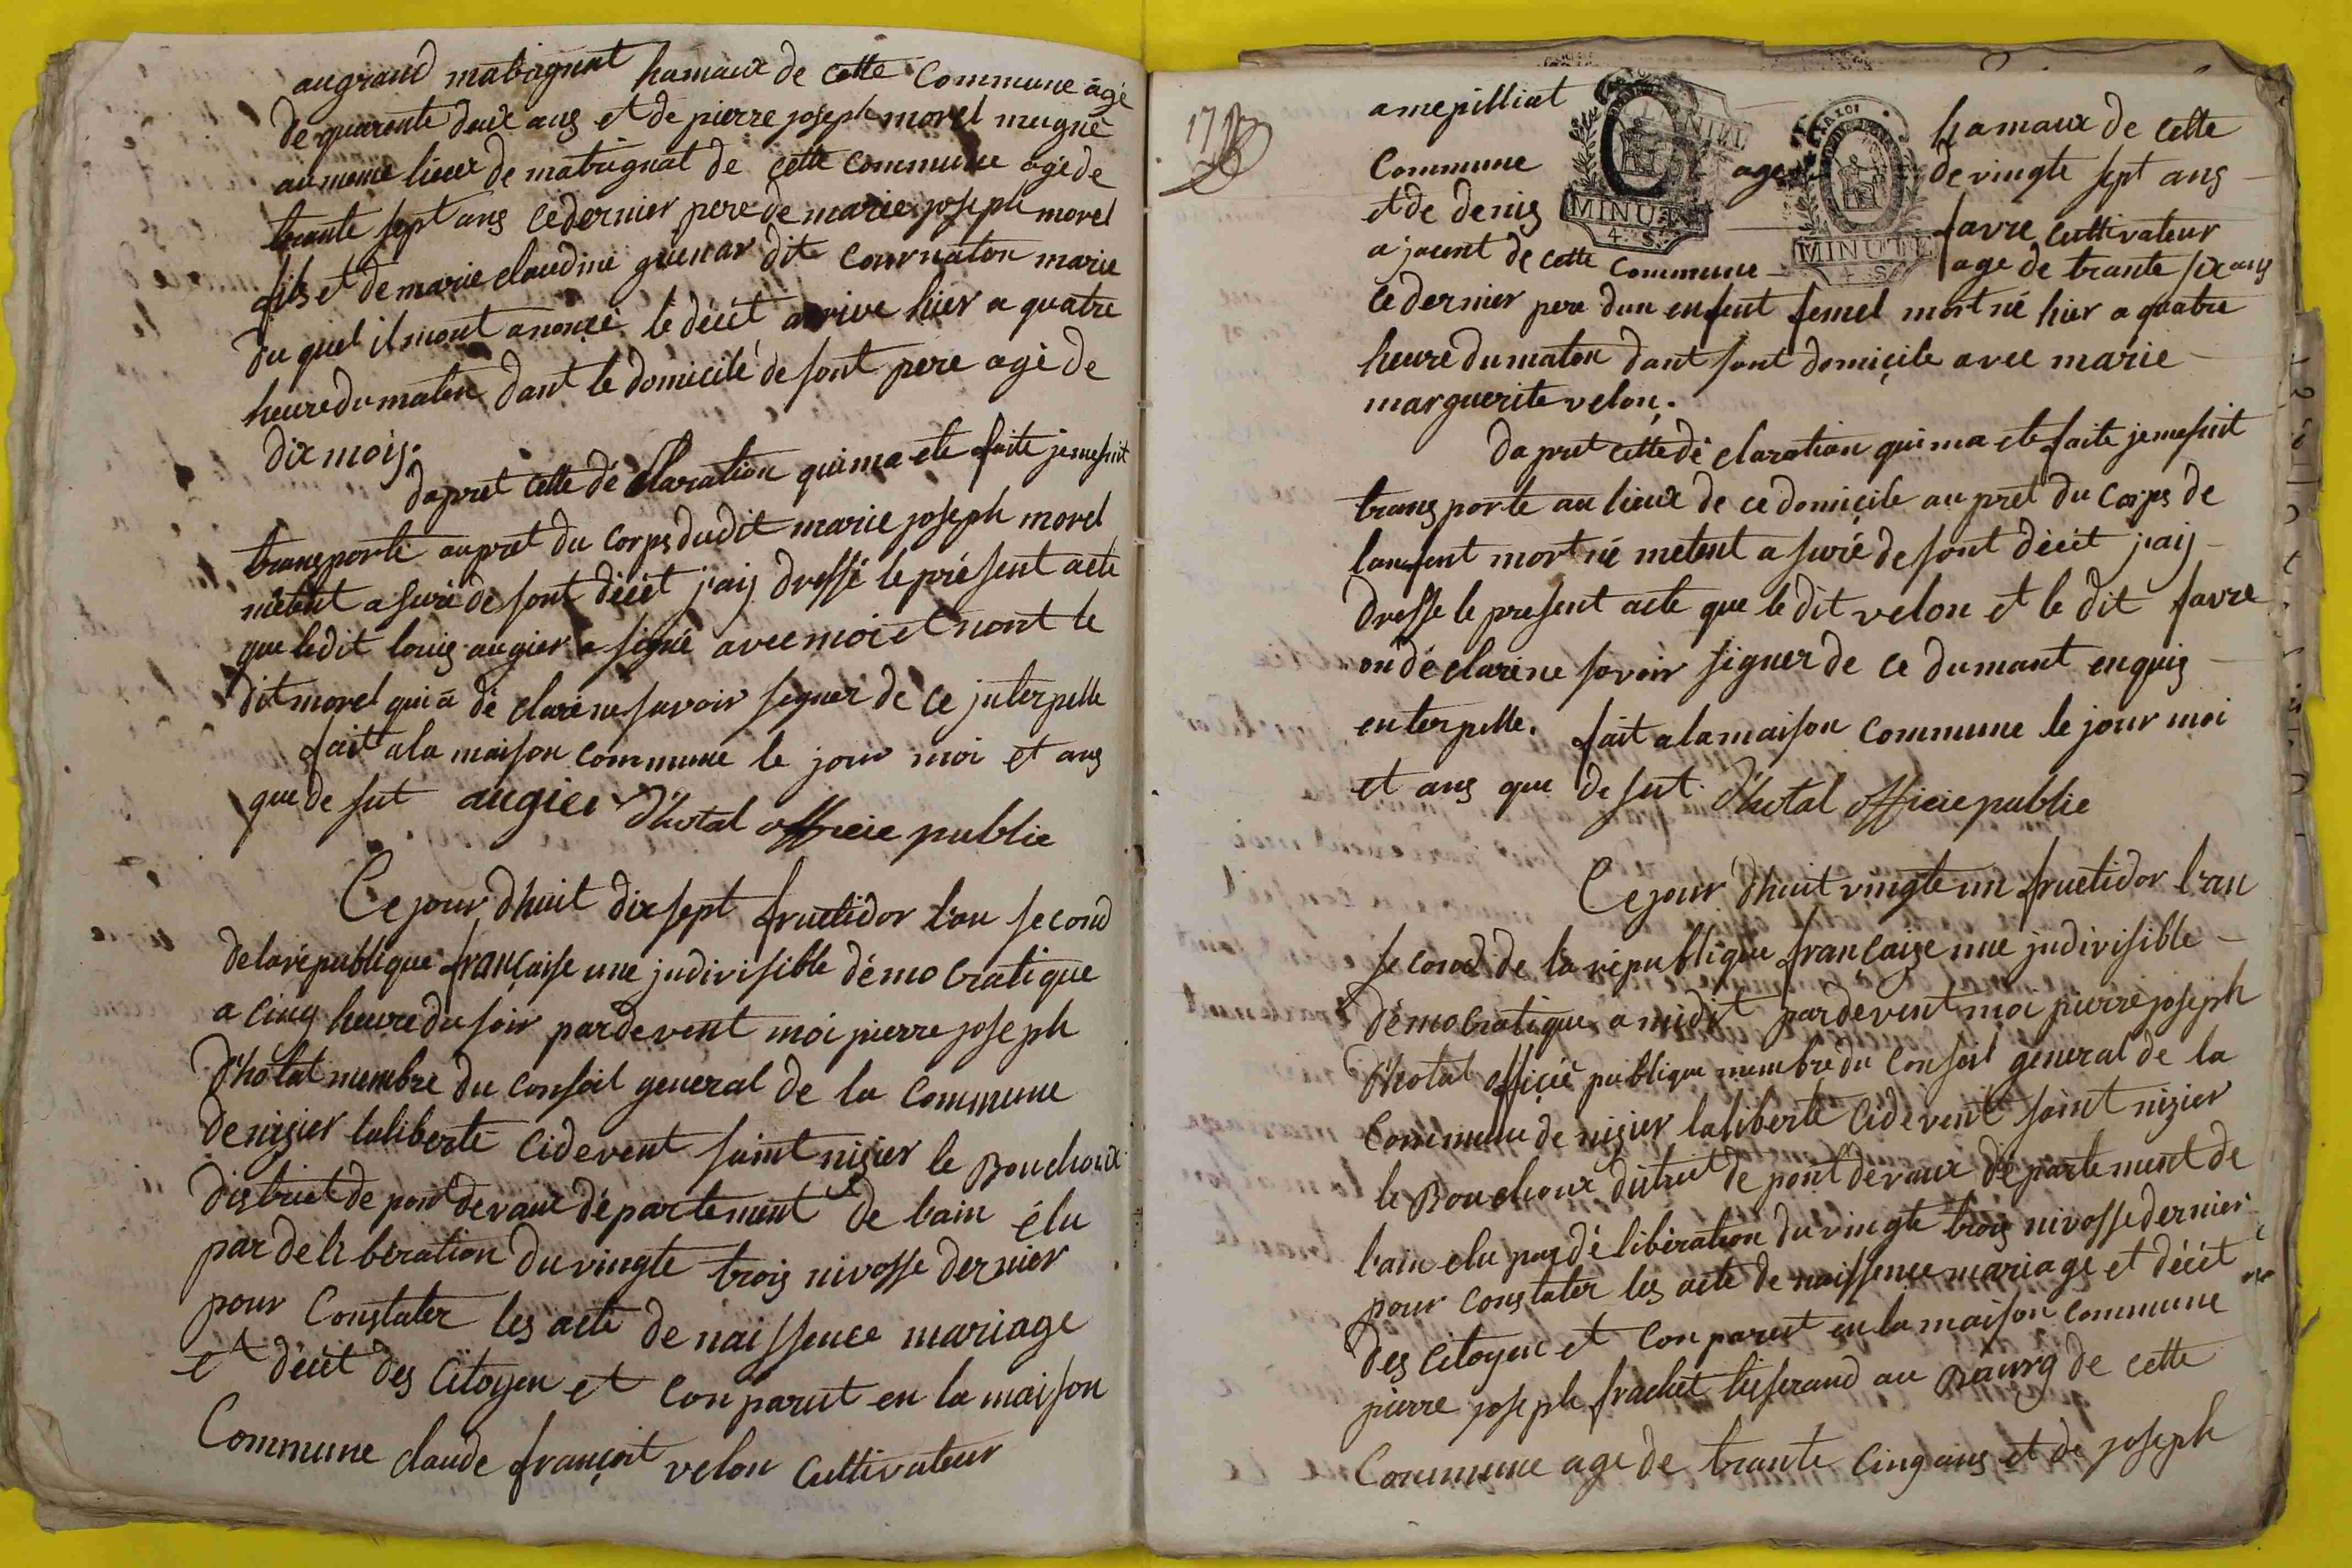 au grand matagnat hamaux de cette Commune agé
de quarente deux ans et de pierre joseph morel
au meme lieux de matagnat de cette commune agé de
trante sept ans ce dernier pere de marie joseph morel
fils et de marie claudine guenar dit cournaton marie
du quel il mont anonçé le décét arrive hier a quatre
heure du maten dant le domicilé de sont pere agé de
dix mois.
dapret cette dé claration qui ma ete faite je me suit
transporté aupret du corps dudit marie joseph morel
metent asuré de sont décét j'aij dressé le présent acte
que ledit louis augier a signé avec moi et nont le
dit morel qui a dé claré ne savoir segner de ce juterpelle
fait a la maison commune le jour moi et ans
que de sut augier D'hotal officie public
Ce jour d'huit dix sept fructidor l'an second
de la république française une judivisible démocratique
a cinq heure du soir par devent moi pierre joseph
D'hotal membre du conseil general de la commune
de nizier laliberté cidevent saint nizier le Bouchoux
district de pont devaux département de lain élu
par deliberation du vingte trois nivosse dernier
pour Constater les acte de naissence mariage
et décét des Citoyen et Conparut en la maison
Commune claude françoit velon Cultivateur
17
amepilliat hamaux de cette
Commune age de vingte sept ans
et de denis favre cultivateur
MINUTE
4. S.
MINUTE
4. S.
ajouent de cette commune age de trante six ans
ce dernier pere dun enfent femel mort né hier a quatre
heure du maten dant sont domiçile avec marie
marguerite velon.
dapret cette dé claration qui ma ete faite je me suit
transporte au lieux de ce domicile aupret du corps de
lenfent mort né metent asuré de sont décét j'aij
dresse le present acte que le dit velon et le dit favre
on déclaré ne savoir signer de ce dumant enquis
enterpelle. fait a la maison commune le jour moi
et ans que de sut. D'hotal officie public
Ce jour d'huit vingte un fructidor l'an
second de la république française une judivisible
démocratique a midit par devent moi pierre joseph
D'hotal officié publique membre du Conseil general de la
Commune de nizier laliberté cidevent saint nizier
le Bouchoux district de pont devaux département de
l'ain elu par délibération du vingte trois nivosse dernier
pour constater les acte de naissence mariage et décét
des Citoyen et Conparut en la maison commune
pierre joseph frachet tisserand au Bourg de cette
Commune age de trante cinq ans et de joseph